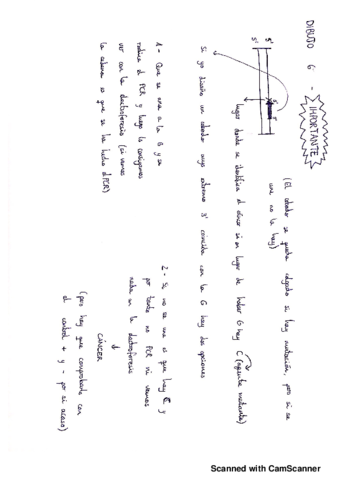 DIBUJO 6 - IMPORTANTE
5' 3'
3' 5'
(El cebador se queda colgado si hay mutación, pero si se
une no la hay)
lugar donde se identifica el cáncer si en lugar de haber G hay C (agente mutante)
Si yo diseño un cebador cuyo extremo 3' coincida con la G hay dos opciones
1- Que se una a la G y se
realice el PCR y luego lo consigamos
ver con la electroforesis (si vemos
la cadena es que se ha hecho el PCR)
2- Si no se une es que hay C y
por tanto no PCR ni vemos
nada en la electroforesis
CÁNCER
(pero hay que comprobarlo con
el control + y - por si acaso)
Scanned with CamScanner